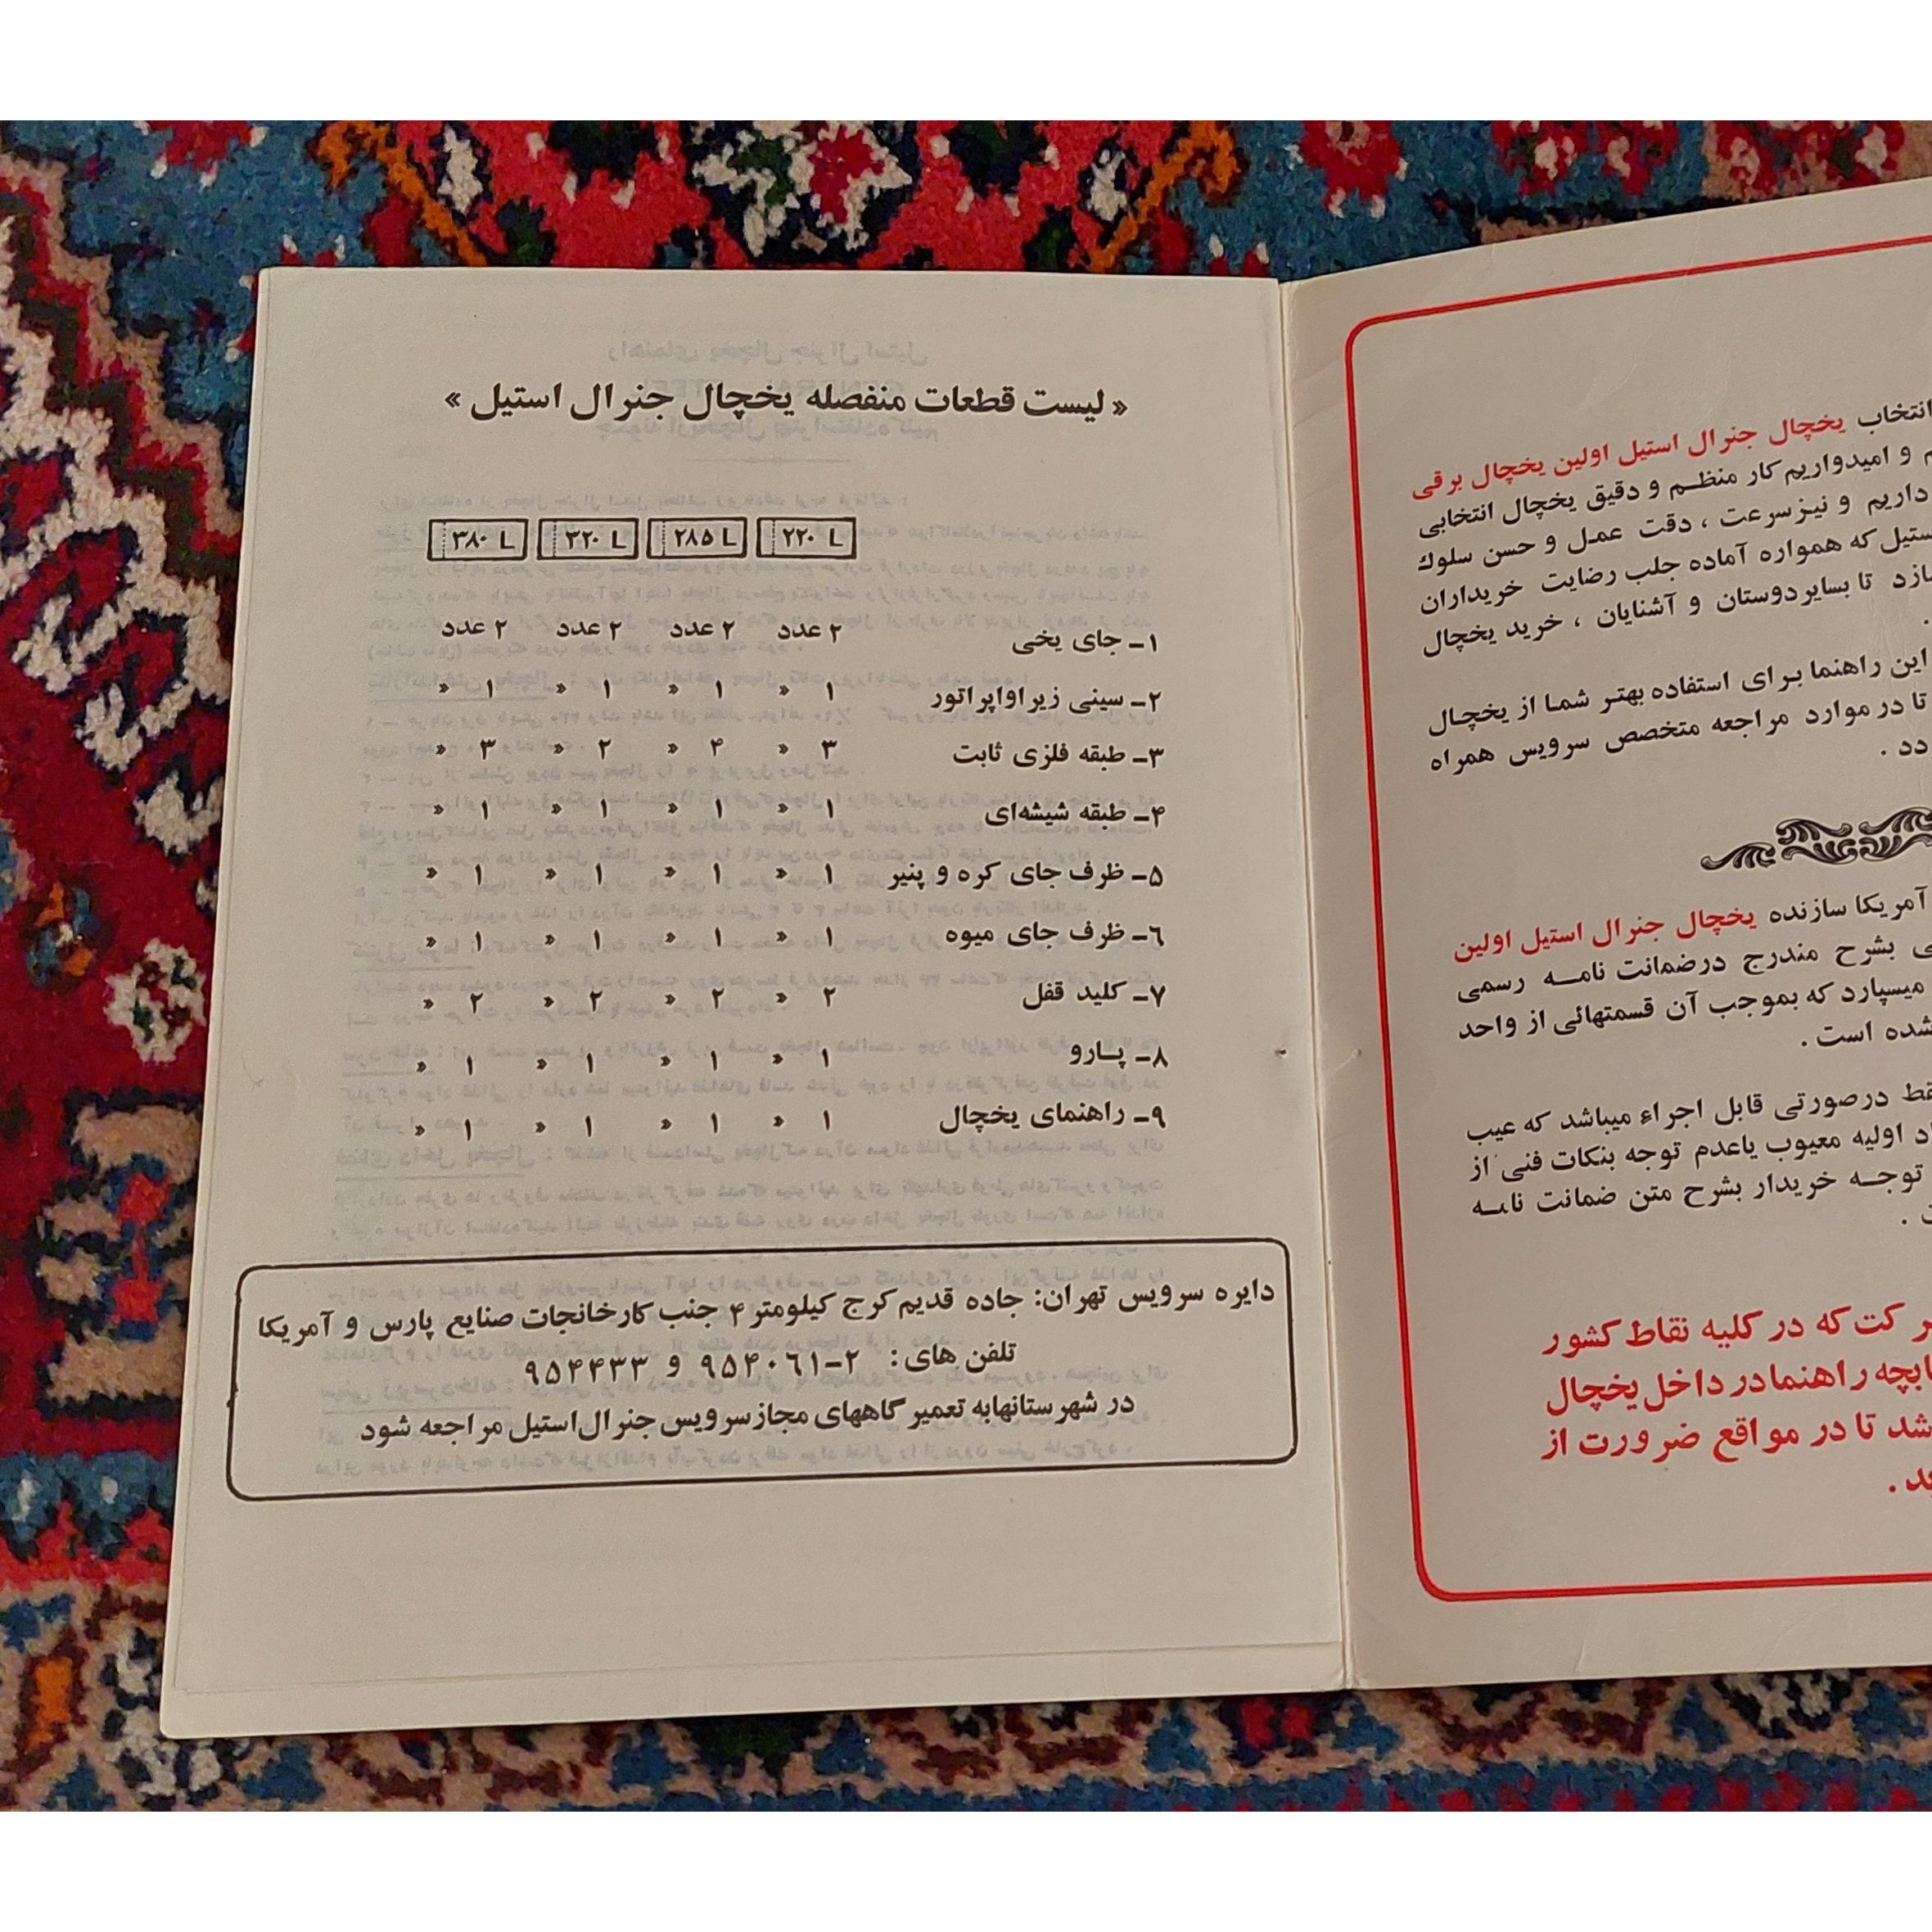 « لیست قطعات منفصله یخچال جنرال استیل »
۲۲۰ L ۲۸۵ L ۳۲۰ L ۳۸۰ L
۱ـ جای یخی ۲ عدد ۲ عدد ۲ عدد ۲ عدد
۲ـ سینی زیراواپراتور ۱ » ۱ » ۱ » ۱ »
۳ـ طبقه فلزی ثابت ۳ » ۴ » ۲ » ۳ »
۴ـ طبقه شیشه‌ای ۱ » ۱ » ۱ » ۱ »
۵ـ ظرف جای کره و پنیر ۱ » ۱ » ۱ » ۱ »
۶ـ ظرف جای میوه ۱ » ۱ » ۱ » ۱ »
۷ـ کلید قفل ۲ » ۲ » ۲ » ۲ »
۸ـ پـارو ۱ » ۱ » ۱ » ۱ »
۹ـ راهنمای یخچال ۱ » ۱ » ۱ » ۱ »
دایره سرویس تهران: جاده قدیم کرج کیلومتر ۴ جنب کارخانجات صنایع پارس و آمریکا
تلفن های: ۲-۹۵۴۰۶۱ و ۹۵۴۴۳۳
در شهرستانهابه تعمیرگاههای مجاز سرویس جنرال استیل مراجعه شود
انتخاب یخچال جنرال استیل اولین یخچال برقی
و امیدواریم کار منظـم و دقیق یخچال انتخابی
داریم و نیز سرعت ، دقت عمـل و حسن سلوك
که همواره آماده جلب رضایت خریداران
تا بسایردوستان و آشنایان ، خرید یخچال
این راهنما بـرای استفاده بهتـر شمـا از یخچـال
تا در موارد مراجعه متخصص سرویس همراه
آمریکا سازنده یخچال جنرال استیل اولین
بشرح مندرج درضمانت نامـه رسمی
میسپارد که بموجب آن قسمتهائی از واحد
شده است .
درصورتی قابل اجراء میباشد که عیب
اولیه معیوب یاعدم توجه بنکات فنی از
توجـه خریدار بشرح متن ضمانت نامـه
که در کلیه نقاط کشور
راهنمادر داخل یخچال
تا در مواقع ضرورت از